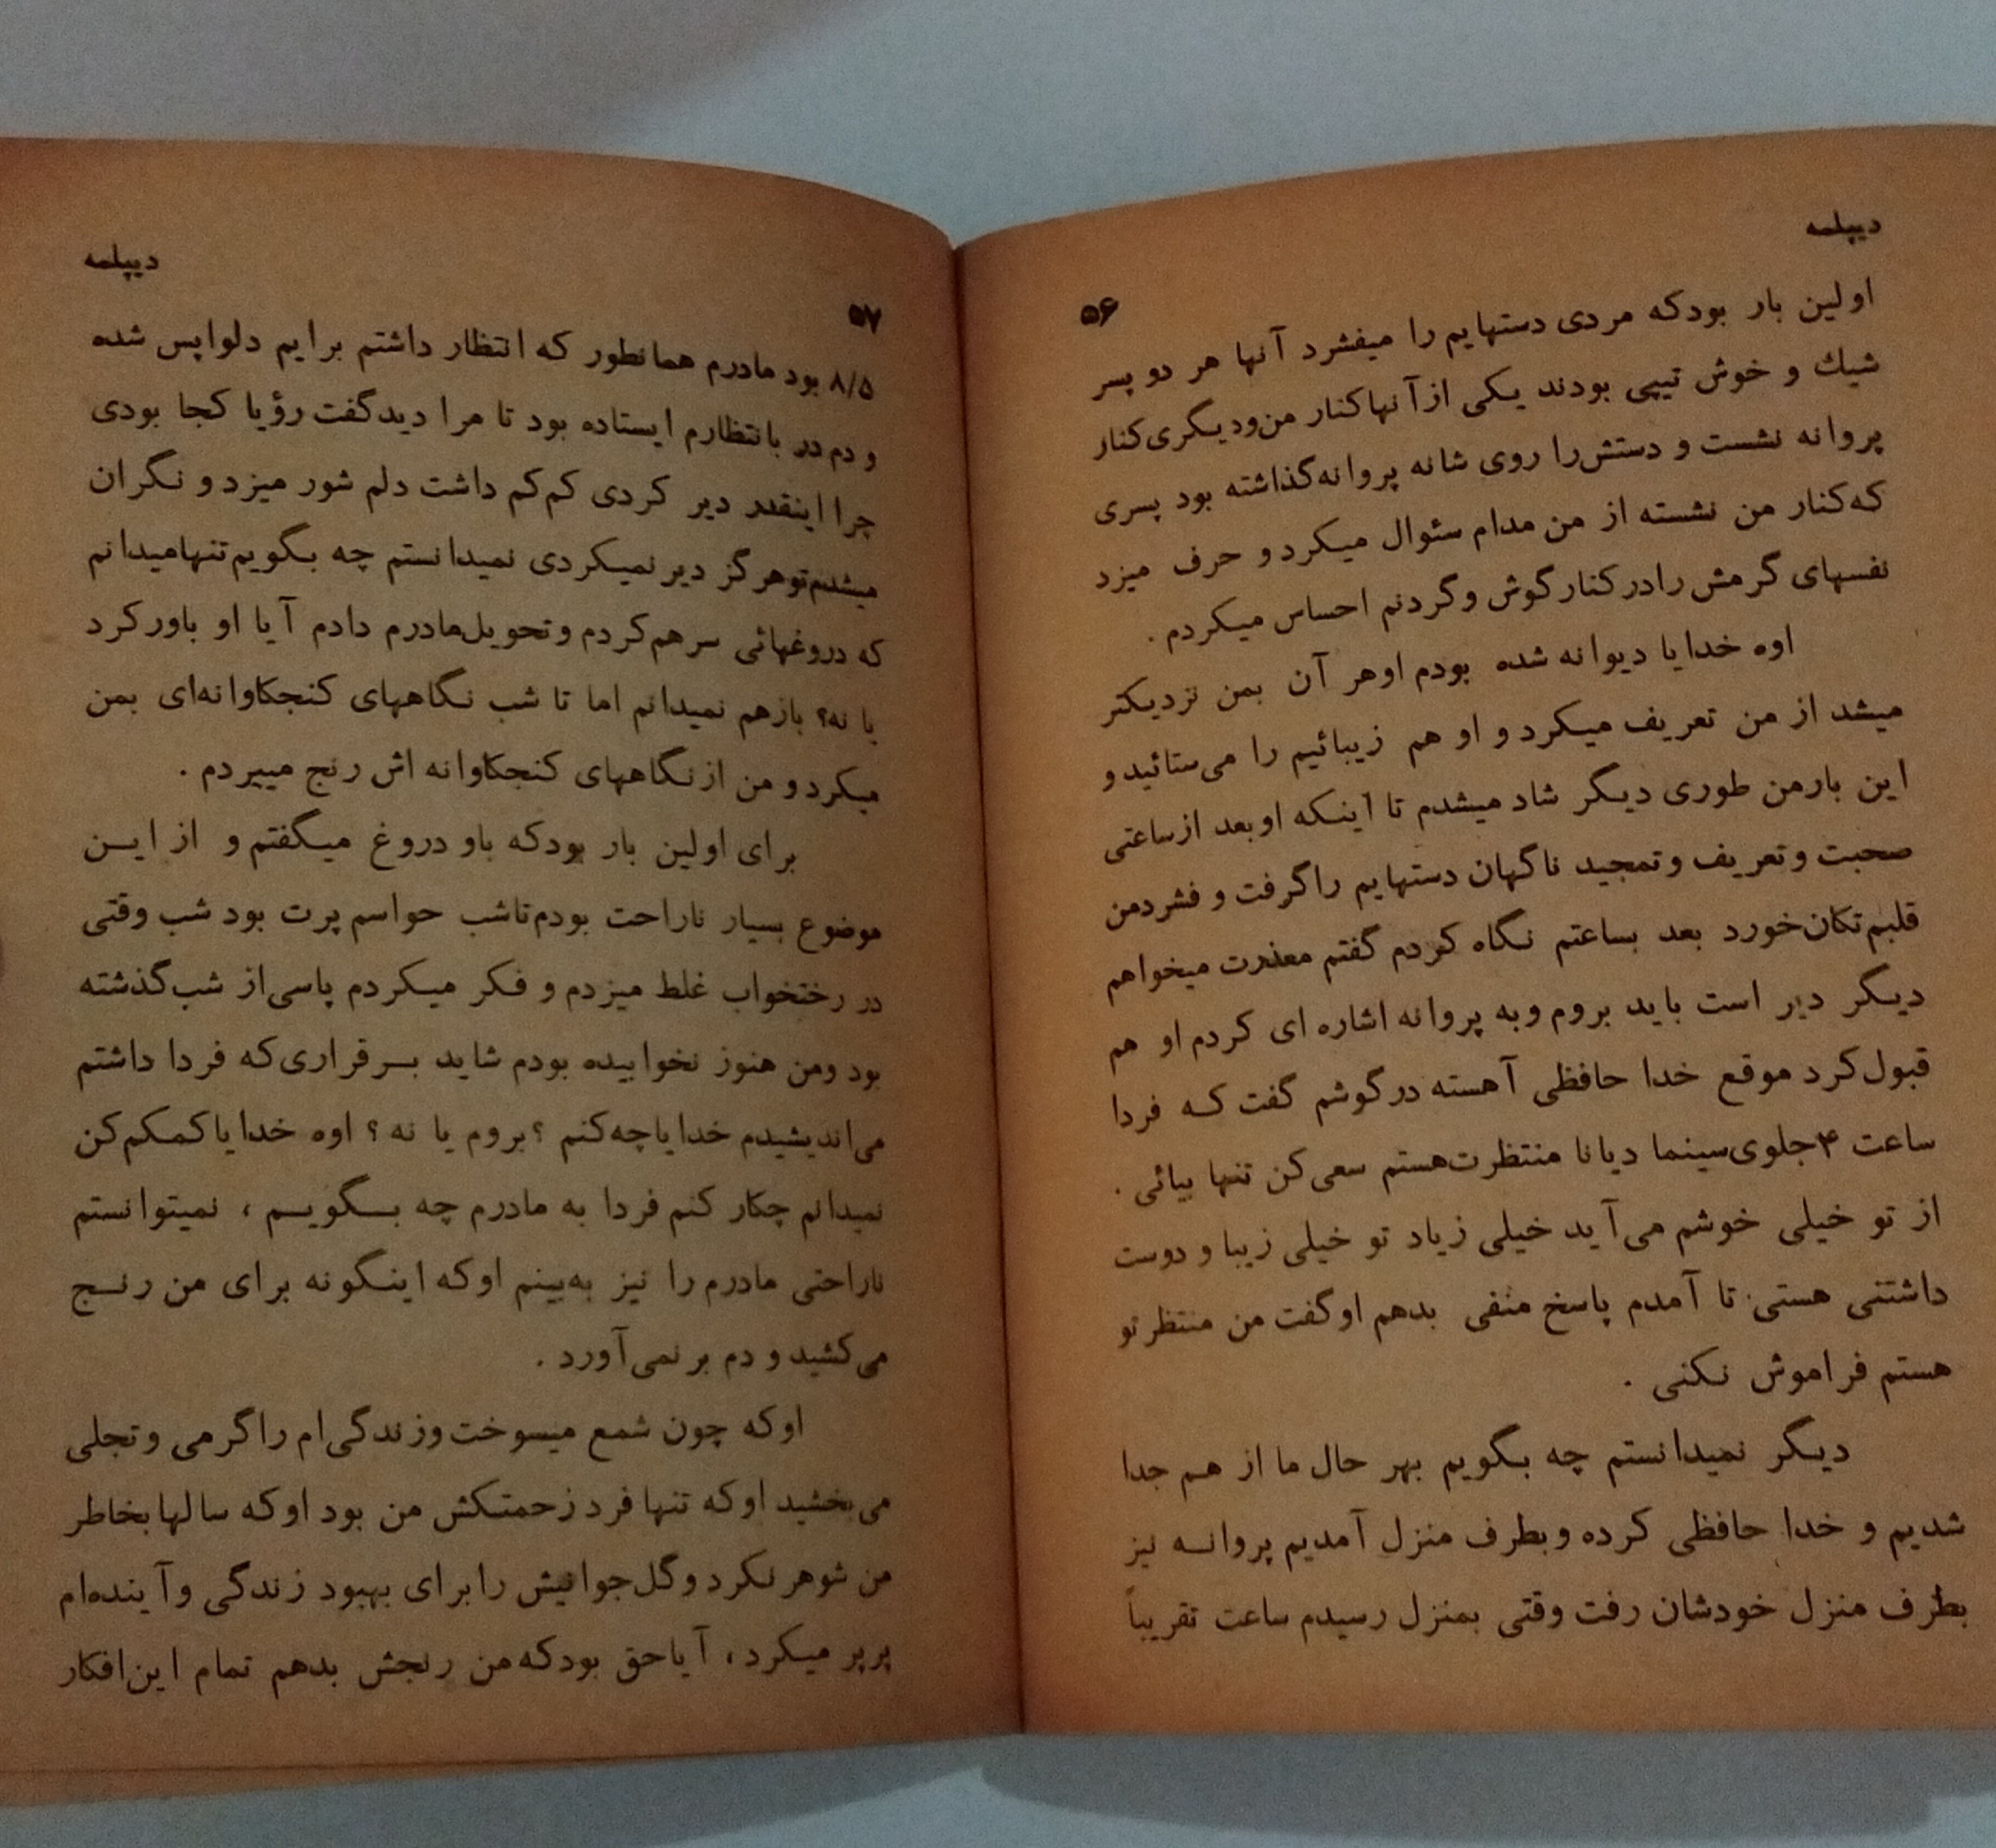 دیپلمه
۵۶
اولین بار بودکه مردی دستهایم را میفشرد آنها هر دو پسر
شیك و خوش تیپی بودند یکی ازآنهاکنار من‌ودیگری‌کنار
پروانه نشست و دستش‌را روی شانه پروانه‌گذاشته بود پسری
که‌کنار من نشسته از من مدام سئوال میکرد و حرف میزد
نفسهای گرمش رادرکنارگوش وگردنم احساس میکردم .
اوه خدایا دیوانه شده بودم اوهر آن بمن نزدیکتر
میشد از من تعریف میکرد و او هم زیبائیم را می‌ستائید و
این بارمن طوری دیگر شاد میشدم تا اینکه اوبعد ازساعتی
صحبت وتعریف وتمجید ناگهان دستهایم راگرفت و فشردمن
قلبم‌تکان‌خورد بعد بساعتم نگاه کردم گفتم معذرت میخواهم
دیگر دیر است باید بروم وبه پروانه اشاره ای کردم او هم
قبول‌کرد موقع خدا حافظی آهسته درگوشم گفت که فردا
ساعت ۴جلوی‌سینما دیانا منتظرت‌هستم سعی‌کن تنها بیائی .
از تو خیلی خوشم می‌آید خیلی زیاد تو خیلی زیبا و دوست
داشتنی هستی تا آمدم پاسخ منفی بدهم اوگفت من منتظر تو
هستم فراموش نکنی .
دیگر نمیدانستم چه بگویم بهر حال ما از هم جدا
شدیم و خدا حافظی کرده وبطرف منزل آمدیم پروانه نیز
بطرف منزل خودشان رفت وقتی بمنزل رسیدم ساعت تقریباً
دیپلمه
۵۷
۸/۵ بود مادرم همانطور که انتظار داشتم برایم دلواپس شده
و دم در بانتظارم ایستاده بود تا مرا دیدگفت رؤیا کجا بودی
چرا اینقدر دیر کردی کم‌کم داشت دلم شور میزد و نگران
میشدم‌توهرگز دیر نمیکردی نمیدانستم چه بگویم‌تنهامیدانم
که دروغهائی سرهم‌کردم وتحویل‌مادرم دادم آیا او باورکرد
یا نه؟ بازهم نمیدانم اما تا شب نگاههای کنجکاوانه‌ای بمن
میکرد و من ازنگاههای کنجکاوانه اش رنج میبردم .
برای اولین بار بودکه باو دروغ میگفتم و از این
موضوع بسیار ناراحت بودم‌تاشب حواسم پرت بود شب وقتی
در رختخواب غلط میزدم و فکر میکردم پاسی‌از شب‌گذشته
بود ومن هنوز نخوابیده بودم شاید برقراری‌که فردا داشتم
می‌اندیشیدم خدایاچه‌کنم ؟بروم یا نه ؟ اوه خدایاکمکم‌کن
نمیدانم چکار کنم فردا به مادرم چه بگویم ، نمیتوانستم
ناراحتی مادرم را نیز به‌بینم اوکه اینگونه برای من رنج
می‌کشید و دم بر نمی‌آورد .
اوکه چون شمع میسوخت وزندگی‌ام راگرمی وتجلی
می‌بخشید اوکه تنها فرد زحمتکش من بود اوکه سالهابخاطر
من شوهر نکرد وگل‌جوانیش رابرای بهبود زندگی وآینده‌ام
پرپر میکرد ، آیاحق بودکه‌من رنجش بدهم تمام این‌افکار